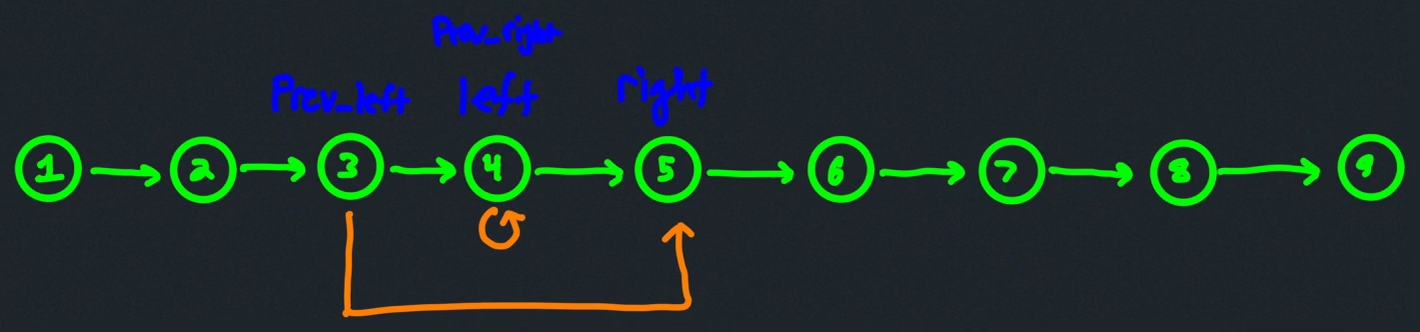 Prev_right
Prev_left left right
1 2 3 4 5 6 7 8 9